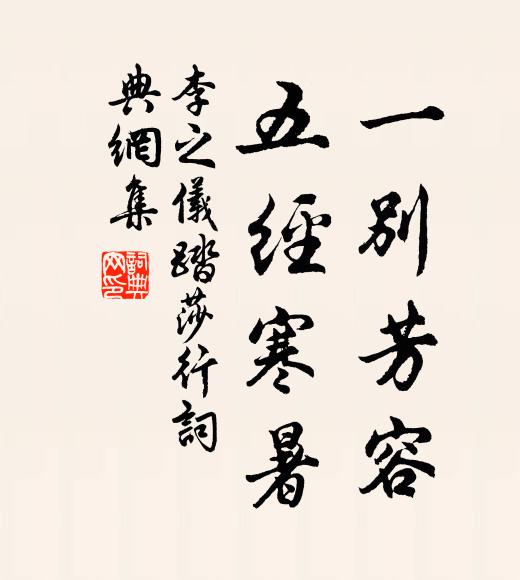 一别芳容
五經寒暑
李之儀踏莎行詞
典網集
詞典
网印